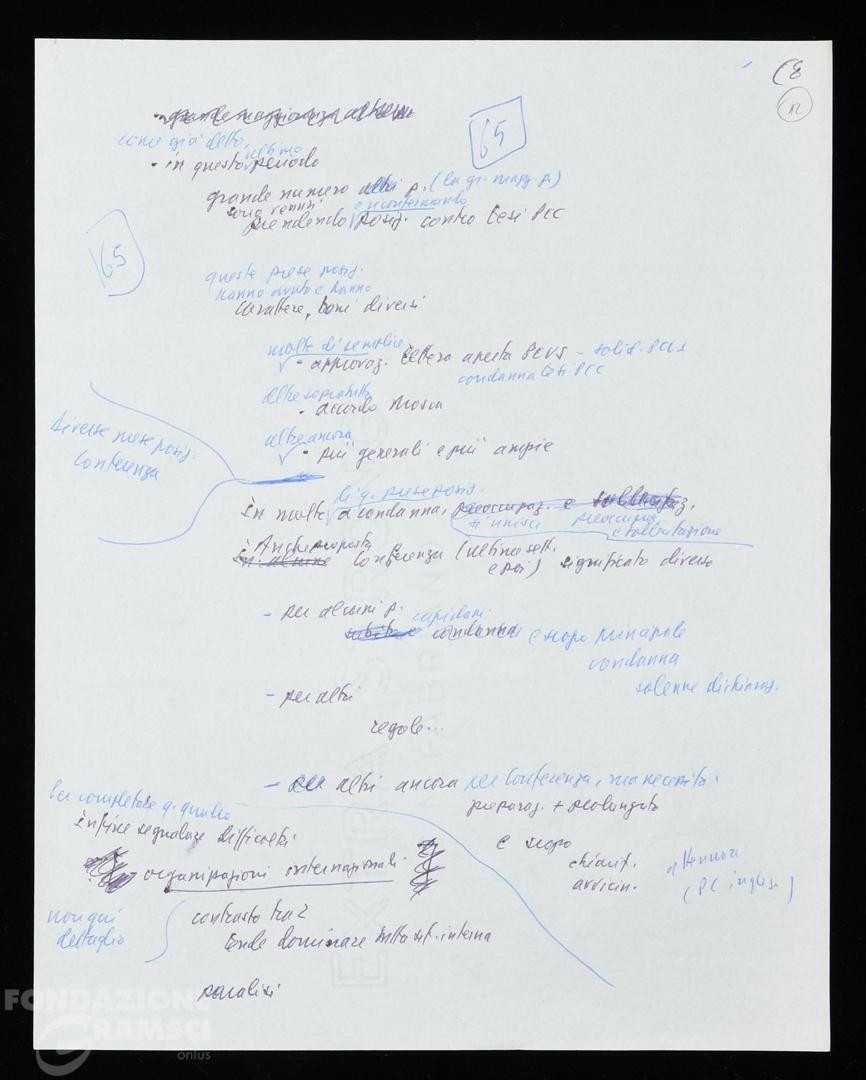 (8
12
65
come già detto
ultimo
• in questo periodo
grande numero altri p. (la gr. magg. p.)
sono venuti e riconfermando
prendendo posiz. contro tesi PCC
65
queste prese posiz.
hanno avuto e hanno
carattere, toni diversi
molte di semplice
• approvaz. lettera aperta PCUS - solid. PCUS
condanna tesi PCC
altre sopratutto
• accordo Mosca
altre ancora
• più generali e più ampie
Diverse prese posiz.
Conferenza
di q. prese posiz.
in molte a condanna, preoccupaz. e
si unisce preoccupaz.
e sollecitazione
Anche proposta
Conferenza (ultime sett.
e poi) significato diverso
- per alcuni p. rapidam.
condanna e scopo principale
condanna
solenne dichiaraz.
- per altri
regole...
- per altri ancora per Conferenza, ma necessità
preparaz. + prolungata
Per completare q. quadro
infine segnalare difficoltà
e scopo
organizzazioni internazionali.
chiarif.
avvicin.
attenuaz.
(PC inglese)
non qui
dettaglio
contrasto tra 2
tende dominare tutta sit. interna
paralisi
EXTRA STRONG
FABRIANO
FONDAZIONE
GRAMSCI
onlus